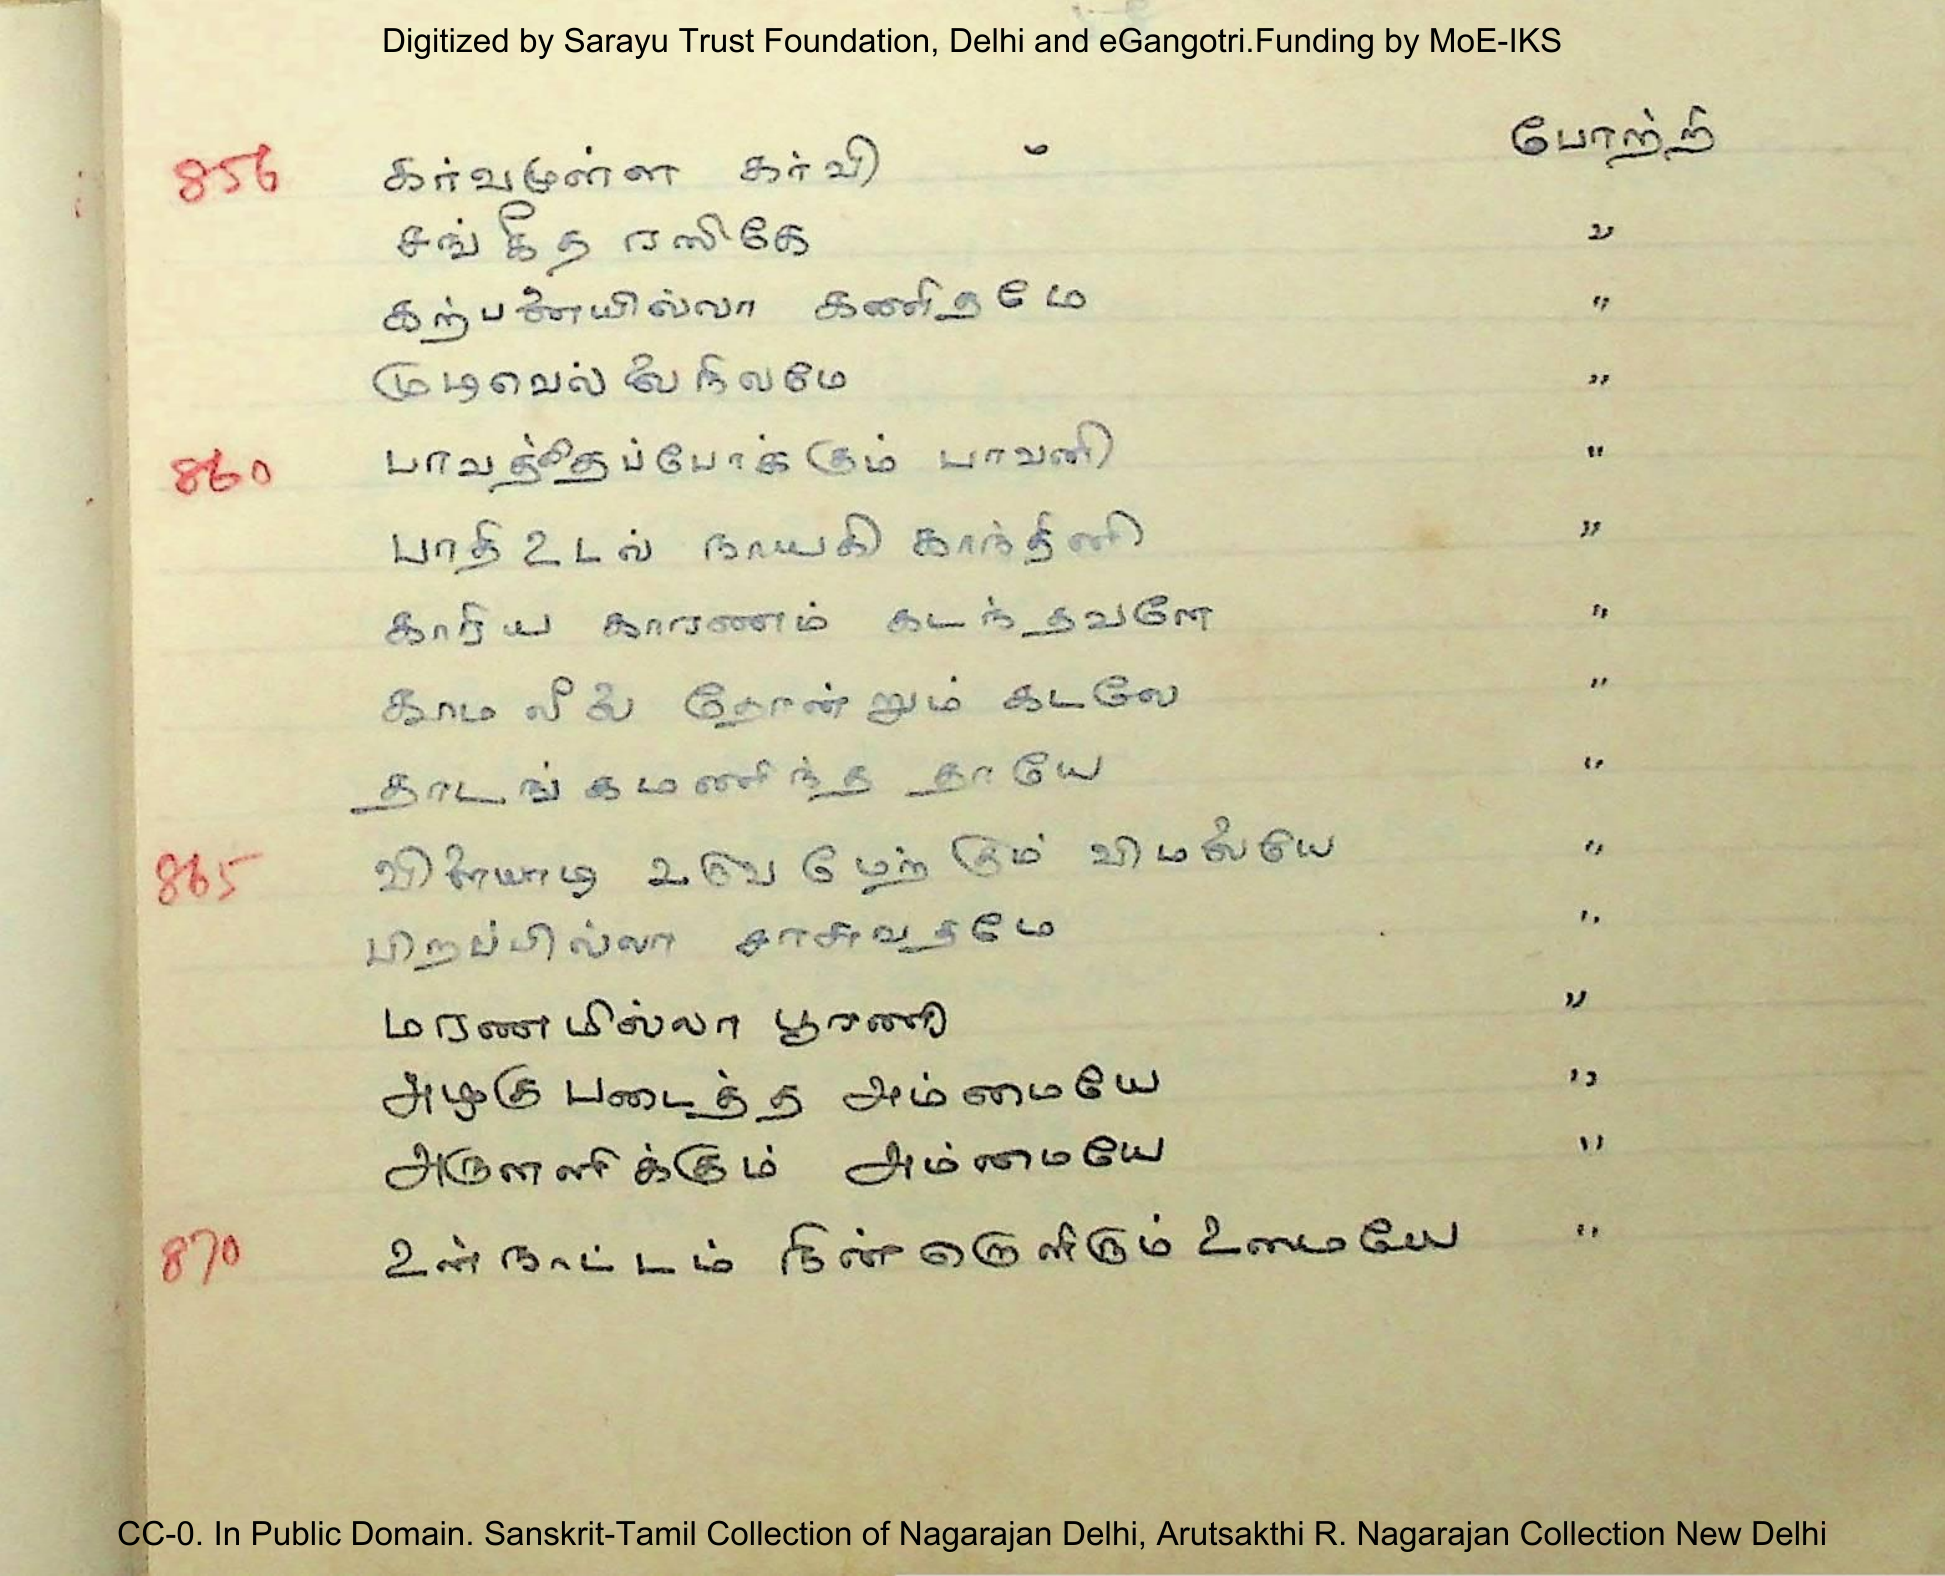 Digitized by Sarayu Trust Foundation, Delhi and eGangotri.Funding by MoE-IKS
856 கர்வமுள்ள கர்வி போற்றி
சங்கீத ரஸிகே "
கற்பனையில்லா கணிதமே "
முடிவெல்லைநிலமே "
860 பாவத்தைப்போக்கும் பாவனி "
பாதி உடல் நாயகி காந்தினி "
காரிய காரணம் கடந்தவளே "
காமலீலை தோன்றும் கடலே "
தாடங்கமணிந்த தாயே "
865 விளையாடி உலவ மேற்கும் விமலையே "
பிறப்பில்லா சாசுவதமே "
மரணமில்லா பூரணி "
அழகு படைத்த அம்மையே "
அருளளிக்கும் அம்மையே "
870 உன் நாட்டம் நின் உமையே "
CC-0. In Public Domain. Sanskrit-Tamil Collection of Nagarajan Delhi, Arutsakthi R. Nagarajan Collection New Delhi